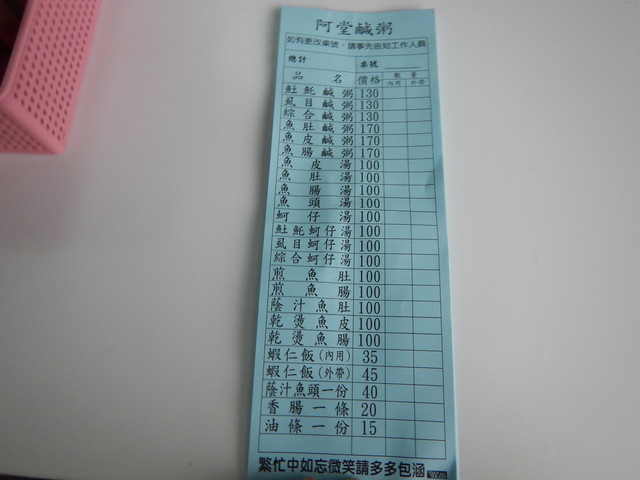 阿堂鹹粥
如有更改桌號，請事先告知工作人員
總計 桌號
品名 價格 數量
內用 外帶
𩵚魠鹹粥 130
虱目鹹粥 130
綜合鹹粥 130
魚肚鹹粥 170
魚皮鹹粥 170
魚腸鹹粥 170
魚皮湯 100
魚肚湯 100
魚腸湯 100
魚頭湯 100
蚵仔湯 100
𩵚魠蚵仔湯 100
虱目蚵仔湯 100
綜合蚵仔湯 100
煎魚肚 100
煎魚腸 100
蔭汁魚肚 100
乾燙魚皮 100
乾燙魚腸 100
蝦仁飯(內用) 35
蝦仁飯(外帶) 45
蔭汁魚頭一份 40
香腸一條 20
油條一份 15
繁忙中如忘微笑請多多包涵